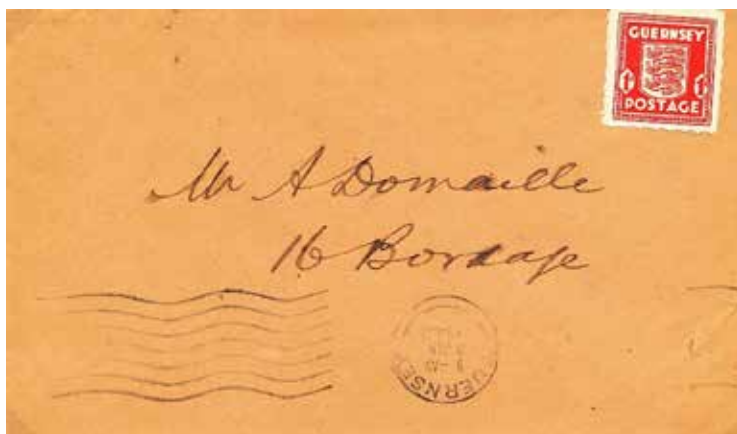 GUERNSEY
1D 1D
POSTAGE
Mr A Domaille
16 Bordage
GUERNSEY